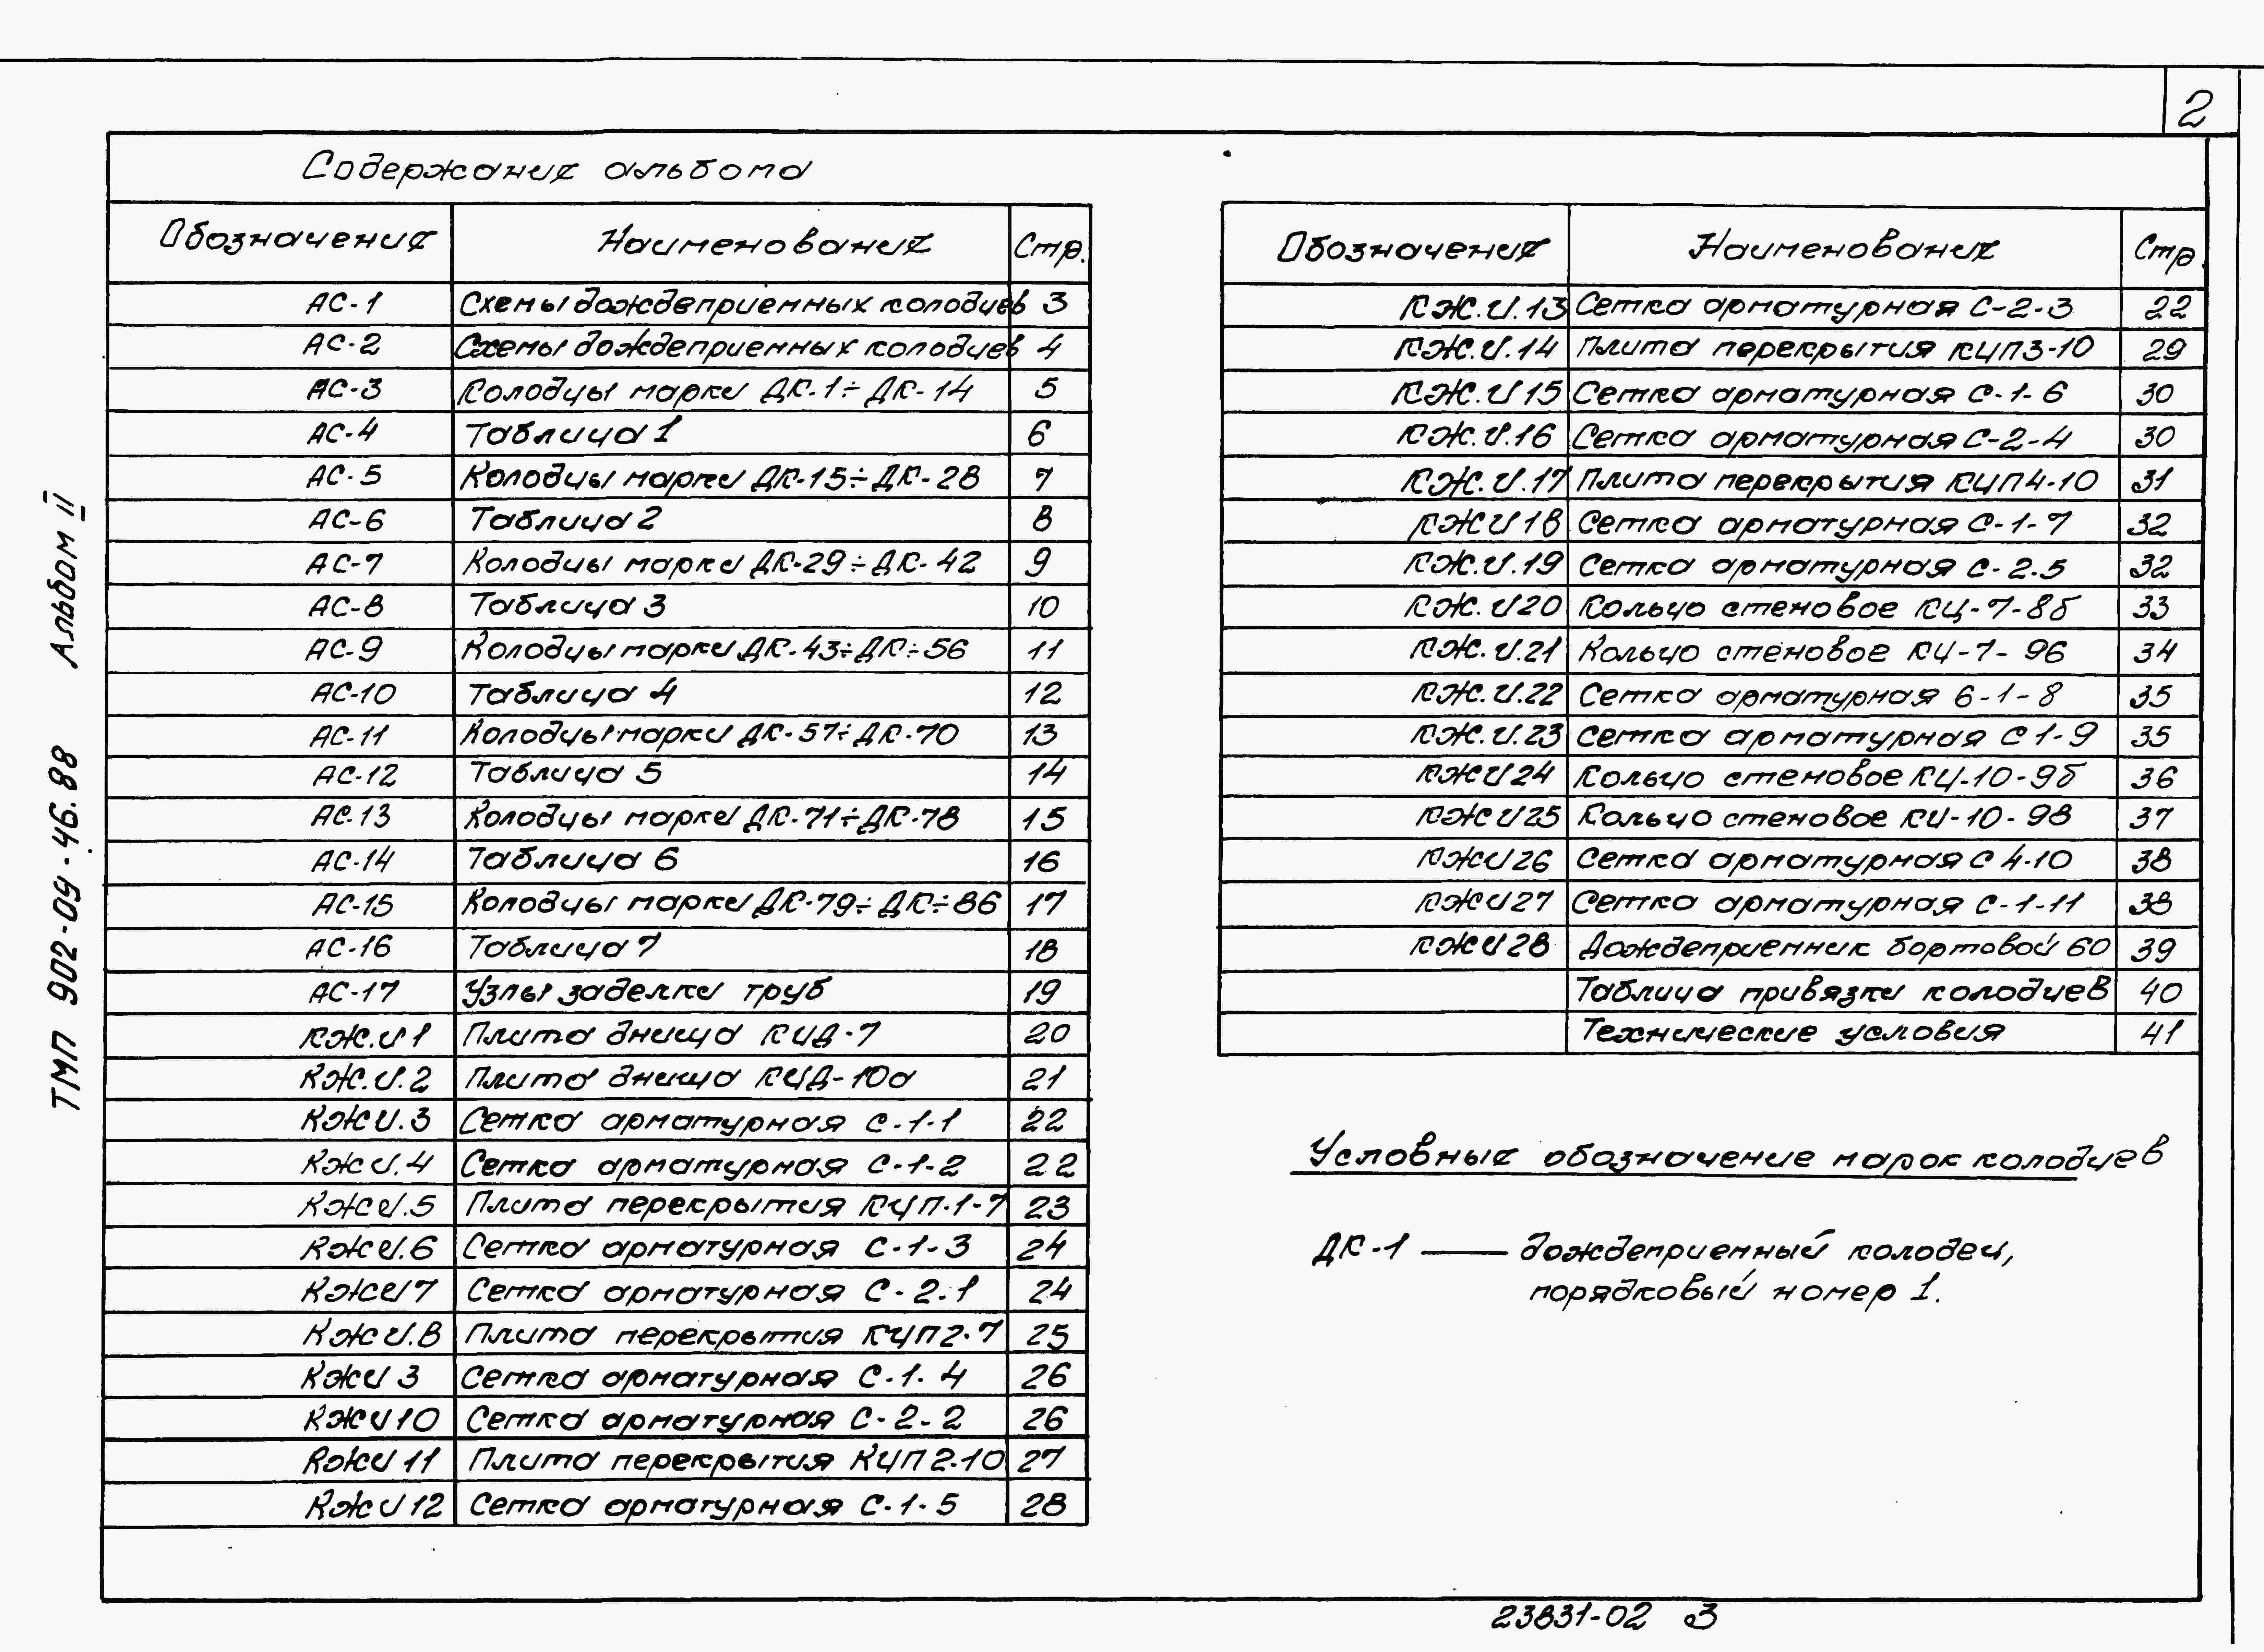 2
Содержание альбома
Обозначение Наименование Стр.
АС-1 Схемы дождеприемных колодцев 3
АС-2 Схемы дождеприемных колодцев 4
АС-3 Колодцы марки ДК-1÷ДК-14 5
АС-4 Таблица 1 6
АС-5 Колодцы марки ДК-15÷ДК-28 7
АС-6 Таблица 2 8
АС-7 Колодцы марки ДК-29÷ДК-42 9
АС-8 Таблица 3 10
АС-9 Колодцы марки ДК-43÷ДК÷56 11
АС-10 Таблица 4 12
АС-11 Колодцы марки ДК-57÷ДК-70 13
АС-12 Таблица 5 14
АС-13 Колодцы марки ДК-71÷ДК-78 15
АС-14 Таблица 6 16
АС-15 Колодцы марки ДК-79÷ДК÷86 17
АС-16 Таблица 7 18
АС-17 Узлы заделки труб 19
КЖ.И 1 Плита днища КЦД-7 20
КЖ.И.2 Плита днища КЦД-10а 21
КЖИ.3 Сетка арматурная С-1-1 22
КЖИ.4 Сетка арматурная С-1-2 22
КЖИ.5 Плита перекрытия КЦП-1-7 23
КЖИ.6 Сетка арматурная С-1-3 24
КЖИ7 Сетка арматурная С-2.1 24
КЖИ.8 Плита перекрытия КЦП2-7 25
КЖИ 3 Сетка арматурная С-1-4 26
КЖИ10 Сетка арматурная С-2-2 26
КЖИ 11 Плита перекрытия КЦП2-10 27
КЖИ 12 Сетка арматурная С-1-5 28
Обозначение Наименование Стр.
КЖ.И.13 Сетка арматурная С-2-3 22
КЖ.И.14 Плита перекрытия КЦП3-10 29
КЖ.И 15 Сетка арматурная С-1-6 30
КЖ.И.16 Сетка арматурная С-2-4 30
КЖ.И.17 Плита перекрытия КЦП4-10 31
КЖИ18 Сетка арматурная С-1-7 32
КЖ.И.19 Сетка арматурная С-2.5 32
КЖ.И20 Кольцо стеновое КЦ-7-8б 33
КЖ.И.21 Кольцо стеновое КЦ-7-96 34
КЖ.И.22 Сетка арматурная 6-1-8 35
КЖ.И.23 Сетка арматурная С 1-9 35
КЖИ24 Кольцо стеновое КЦ-10-9б 36
КЖИ25 Кольцо стеновое КЦ-10-98 37
КЖИ26 Сетка арматурная С 4-10 38
КЖИ27 Сетка арматурная С-1-11 38
КЖИ28 Дождеприемник бортовой 60 39
Таблица привязки колодцев 40
Технические условия 41
Условные обозначение марок колодцев
ДК-1 — дождеприенный колодец,
порядковый номер 1.
ТМП 902-09-46.88 Альбом II
23831-02 3